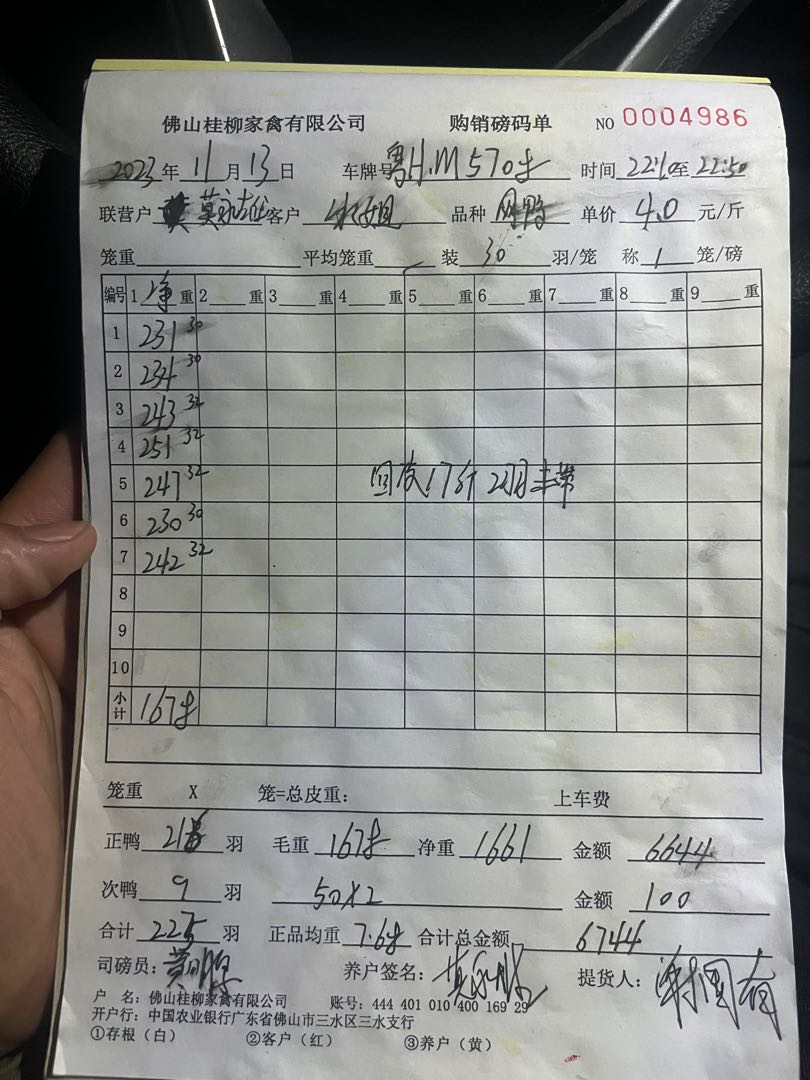 佛山桂柳家禽有限公司 购销磅码单 NO 0004986
2023年11月13日 车牌号粤H.M5708 时间22:10至22:50
联营户 客户 品种 单价4.0元/斤
笼重 平均笼重 装30羽/笼 称1笼/磅
编号 1净重 2重 3重 4重 5重 6重 7重 8重 9重
1 231 30
2 234 30
3 243 32
4 251 32
5 247 32
6 230 30
7 242 32
8
9
10
小计 1678
17斤 2羽
笼重 X 笼=总皮重: 上车费
正鸭 羽 毛重1678 净重1661 金额6644
次鸭9羽 50X2 金额100
合计225羽 正品均重7.68 合计总金额6744
司磅员: 养户签名: 提货人:
户 名: 佛山桂柳家禽有限公司 账号: 444 401 010 400 169 29
开户行: 中国农业银行广东省佛山市三水区三水支行
①存根(白) ②客户(红) ③养户(黄)